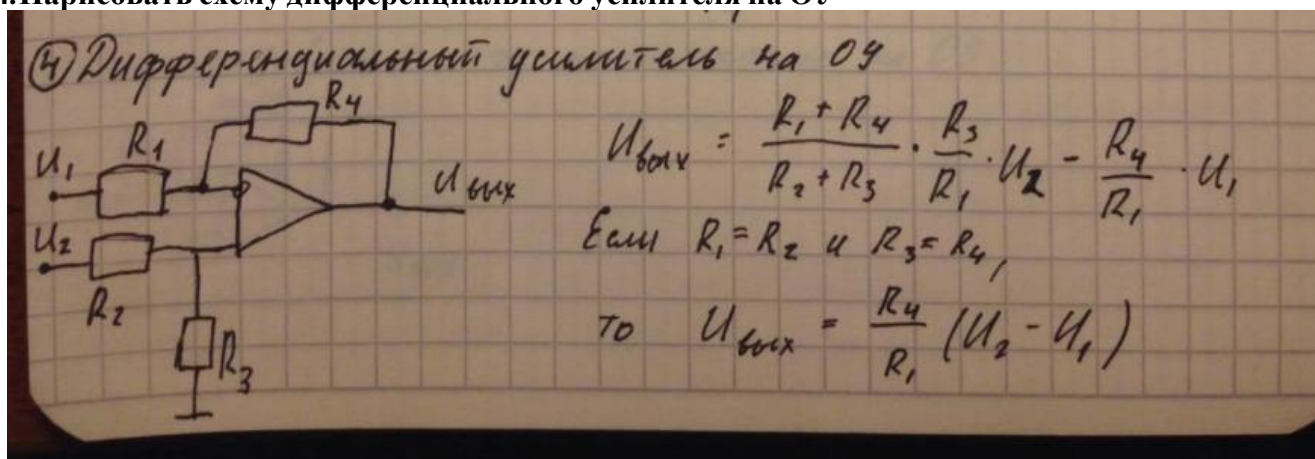 4.Нарисовать схему дифференциального усилителя на ОУ
④ Дифференциальный усилитель на ОУ
R4
R1
U1
Uвых
U2
R2
R3
Uвых = (R1 + R4)/(R2 + R3) · R3/R1 · U2 - R4/R1 · U1
Если R1 = R2 и R3 = R4,
то Uвых = R4/R1 (U2 - U1)